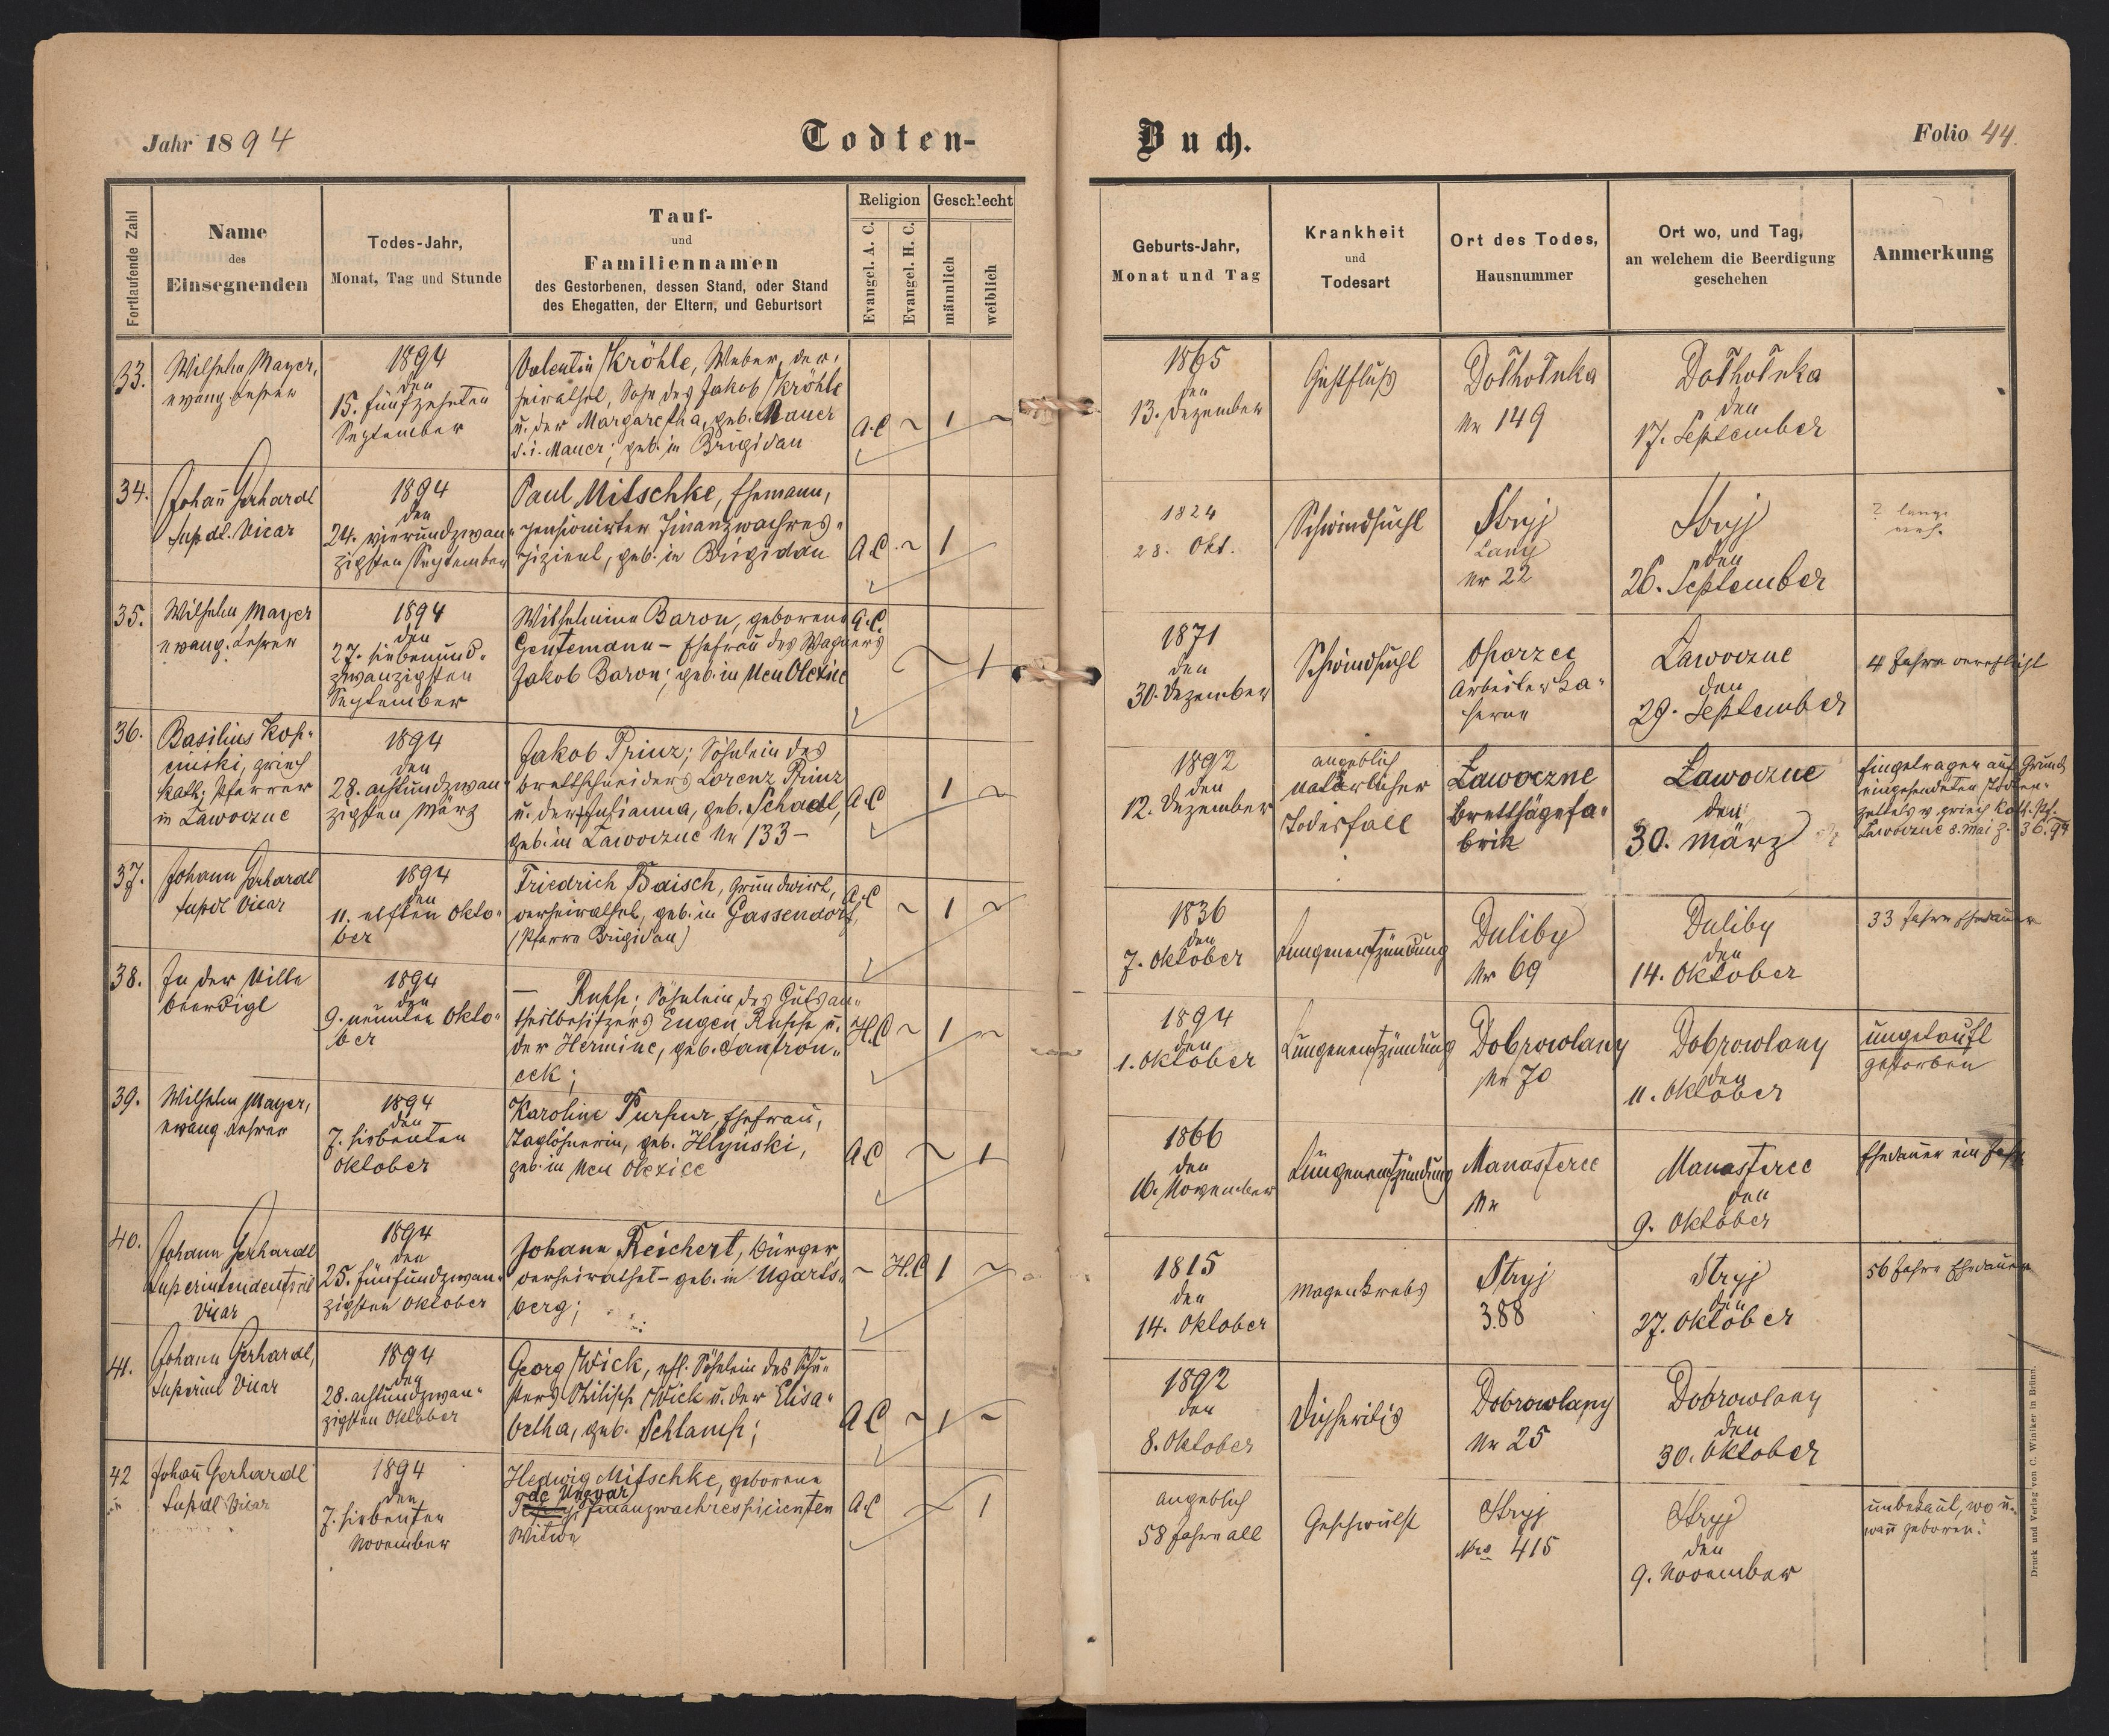 Jahr 1894
Todten-
Buch.
Folio 44.
Fortlaufende Zahl
Name
des
Einsegnenden
Todes-Jahr,
Monat, Tag und Stunde
Tauf-
und
Familiennamen
des Gestorbenen, dessen Stand, oder Stand
des Ehegatten, der Eltern, und Geburtsort
Religion
Evangel. A. C.
Evangel. H. C.
Geschlecht
männlich
weiblich
Geburts-Jahr,
Monat und Tag
Krankheit
und
Todesart
Ort des Todes,
Hausnummer
Ort wo, und Tag,
an welchem die Beerdigung
geschehen
Anmerkung
33.
Wilhelm Mayer,
evang. Lehrer
1894
den
15. fünfzehnten
September
Valentin Kröhle, Weber, ver-
heirathet, Sohn des Jakob Kröhle
u. der Margaretha, geb. Mauer
d. i. Mauer; geb. in Brigidau
A.C ~ 1 ~
1865
den
13. Dezember
Nr 149
den
17. September
34.
Johañ Gerhardt
Supdl. Vicar
1894
den
24. vierundzwan-
zigsten September
Paul Mitschke, Ehemann,
pensionirter Finanzwachres-
pizient, geb. in Brigidau
A.C. ~ 1
1824
28. Okt.
Schwindsucht
Stryj
Lany
Nr 22
Stryj
den
26. September
35.
Wilhelm Mayer
evang. Lehrer
1894
den
27. siebenund-
zwanzigsten
September
Wilhelmine Baron, geborene
Gentemann - Ehefrau des Wagners
Jakob Baron; geb. in Neu Olexice
A.C.
~ 1
1871
den
30. Dezember
Schwindsucht
Oporzec
Arbeiterka-
serne
Lawoczne
den
29. September
4 Jahre verehlicht
36.
Basilius Kop-
cinski, griech
kath. Pfarrer
in Lawoczne
1894
den
28. achtundzwan-
zigsten März
Jakob Prinz; Söhnlein des
Brettschneiders Lorenz Prinz
u. der Julianna, geb. Schadl,
geb. in Lawoczne Nr 133 -
A.C 1 ~
1892
den
12. Dezember
angeblich
natürlicher
Todesfall
Lawoczne
Brettsägefa-
brik
Lawoczne
den
30. März
Eingetragen auf Grund
eingesendeten Todten-
zettels v. griech kath. Pf.
Lawoczne 8. Mai Z. 36. 94
37.
Johann Gerhardt
Supdl Vicar
1894
den
11. elften Okto-
ber
Friedrich Baisch, Grundwirt,
verheirathet, geb. in Gassendorf,
(Pfarre Brigidau)
A.C ~ 1 ~
1836
den
7. Oktober
Lungenentzündung
Duliby
Nr 69
Duliby
den
14. Oktober
33 Jahre Ehedauer
38.
In der Stille
beerdigt
1894
den
9. neunten Okto-
ber
— Rupp; Söhnlein des Gutsan-
theilbesitzers Eugen Rupp u.
der Hermine, geb.
H.C ~ 1 ~
1894
den
1. Oktober
Lungenentzündung
Dobrowlany
Nr 70
Dobrowlany
den
11. Oktober
ungetauft
gestorben
39.
Wilhelm Mayer,
evang. Lehrer
1894
den
7. siebenten
Oktober
Karoline Ehefrau,
Taglöhnerin, geb. Hlynski,
geb. in Neu Olexice
A.C ~ 1
1866
den
16. November
Lungenentzündung
Manasterec
Nr
Manasterec
den
9. Oktober
Ehedauer ein Jahr
40.
Johann Gerhardt
Vicar
1894
den
25. fünfundzwan-
zigsten Oktober
Johann Reichert, Bürger,
verheirathet - geb. in Ugarts-
berg;
~ H.C 1 ~
1815
den
14. Oktober
Magenkrebs
Stryj
388
Stryj
den
27. Oktober
56 Jahre Ehedauer
41.
Johann Gerhardt,
Superint Vicar
1894
den
28. achtundzwan-
zigsten Oktober
Georg Wick, ehl. Söhnlein des Schu-
sters Philipp Wick u. der Elisa-
betha, geb. Schlamp;
A.C ~ 1 ~
1892
den
8. Oktober
Diphteritis
Dobrowlany
Nr 25
Dobrowlany
den
30. Oktober
42
Johañ Gerhardt
Supdl Vicar
1894
den
7. siebenten
November
Hedwig Mitschke, geborene
de Ungvar
Finanzwachrespicienten
Witwe
A.C ~ 1
angeblich
58 Jahre alt
Geschwulst
Stryj
Nro 415
Stryj
den
9. November
unbekañt, wo u.
wañ geboren.
Druck und Verlag von C. Winiker in Brünn.